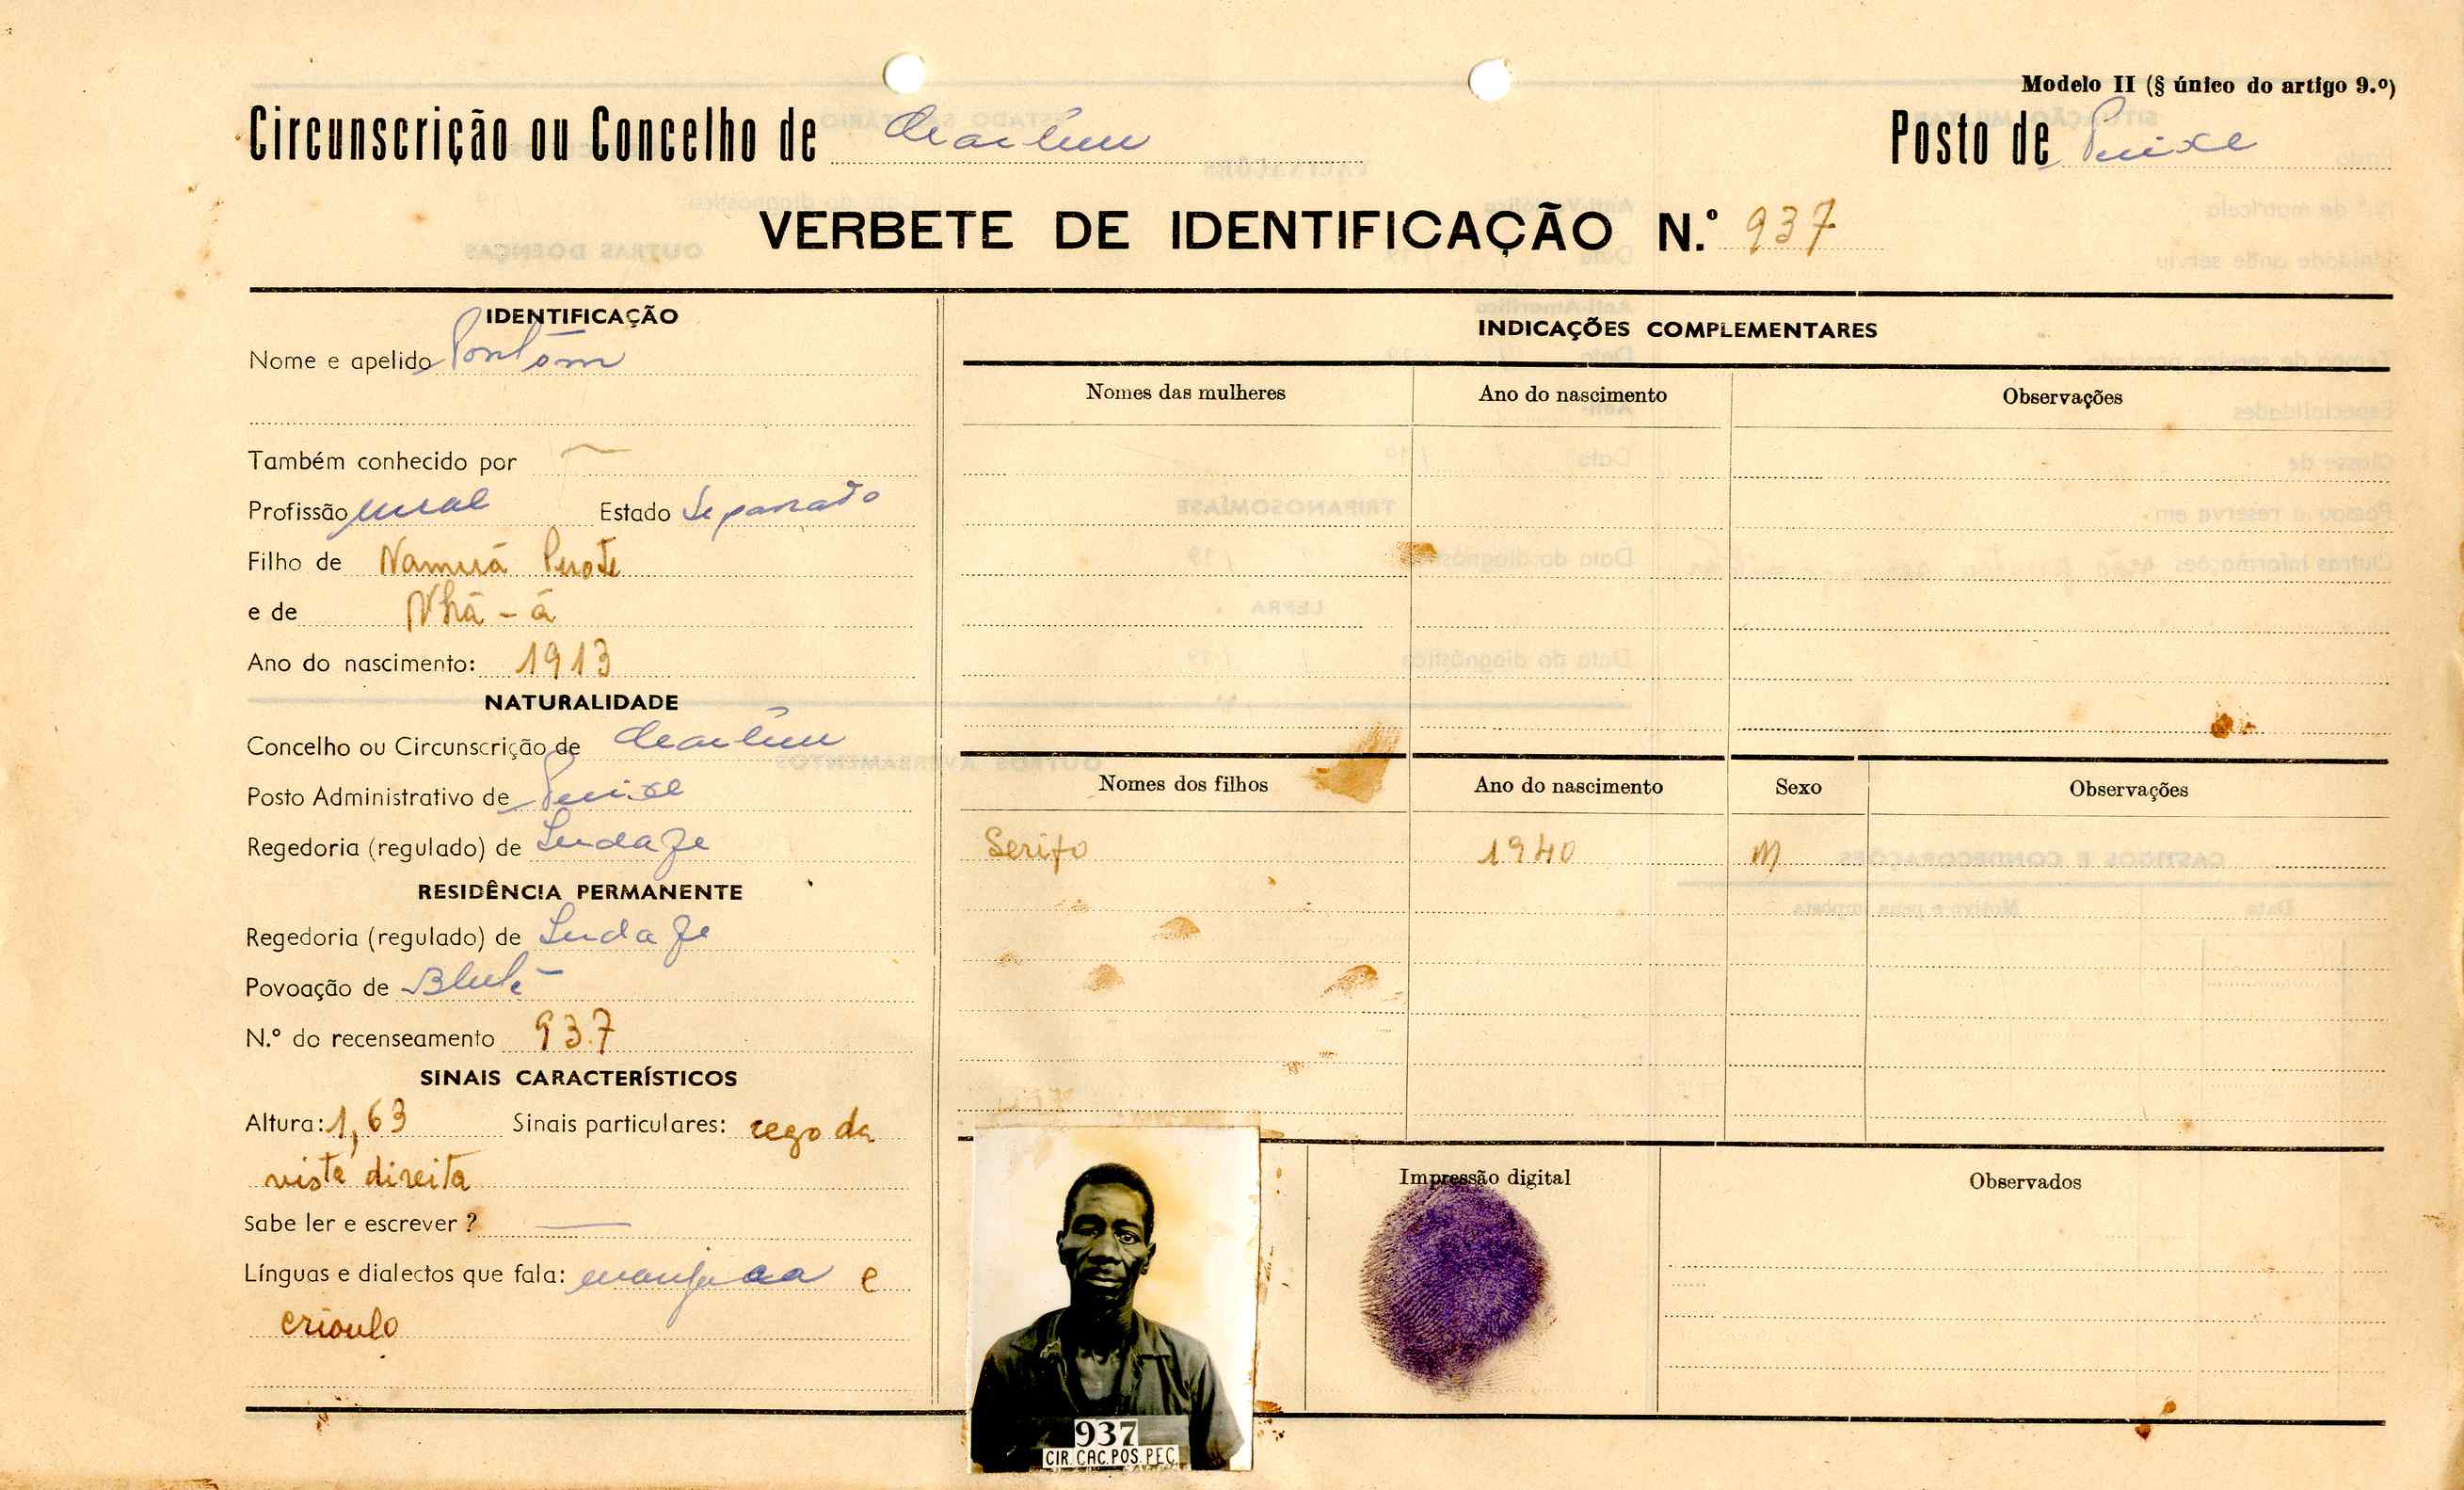 Modelo II (§ único do artigo 9.º)
Circunscrição ou Concelho de Cacheu
Posto de Pecixe
VERBETE DE IDENTIFICAÇÃO N.º 937
IDENTIFICAÇÃO
Nome e apelido
Também conhecido por
Profissão rural Estado Separado
Filho de
e de Nhá - á
Ano do nascimento: 1913
NATURALIDADE
Concelho ou Circunscrição de Cacheu
Posto Administrativo de Pecixe
Regedoria (regulado) de
RESIDÊNCIA PERMANENTE
Regedoria (regulado) de
Povoação de
N.º do recenseamento 937
SINAIS CARACTERÍSTICOS
Altura: 1,63 Sinais particulares: cego da
vista direita
Sabe ler e escrever ?
Línguas e dialectos que fala: manjaca e
crioulo
INDICAÇÕES COMPLEMENTARES
Nomes das mulheres Ano do nascimento Observações
Nomes dos filhos Ano do nascimento Sexo Observações
Serifo 1940 M
Impressão digital
Observados
937
CIR. CAC. POS. PEC.